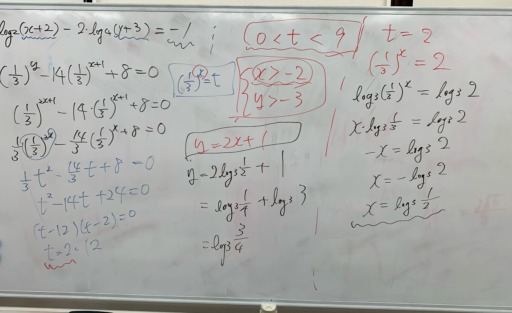 log₂(x+2) - 2·log₄(y+3) = -1
(1/3)^y - 14(1/3)^(x+1) + 8 = 0
(1/3)^(2x+1) - 14·(1/3)^(x+1) + 8 = 0
1/3·(1/3)^(2x) - 14/3(1/3)^x + 8 = 0
1/3t² - 14/3t + 8 = 0
t² - 14t + 24 = 0
(t-12)(t-2) = 0
t = 2, 12
(1/3)^x = t
0 < t < 9
x > -2
y > -3
y = 2x + 1
y = 2log₃1/2 + 1
= log₃1/4 + log₃3
= log₃3/4
t = 2
(1/3)^x = 2
log₃(1/3)^x = log₃2
x·log₃1/3 = log₃2
-x = log₃2
x = -log₃2
x = log₃1/2